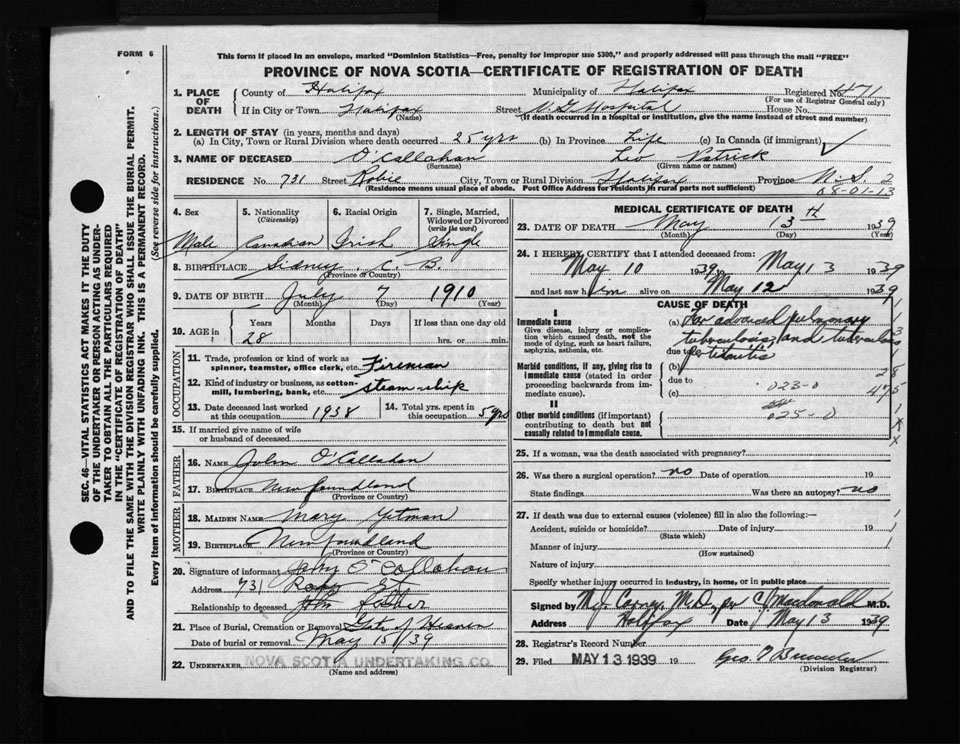 FORM 6
This form if placed in an envelope, marked "Dominion Statistics—Free, penalty for improper use $300," and properly addressed will pass through the mail "FREE"
PROVINCE OF NOVA SCOTIA—CERTIFICATE OF REGISTRATION OF DEATH
1. PLACE OF DEATH County of Halifax Municipality of Halifax Registered No. 471
(For use of Registrar General only)
If in City or Town Halifax Street V. G. Hospital House No.
(Name) (If death occurred in a hospital or institution, give the name instead of street and number)
2. LENGTH OF STAY (in years, months and days)
(a) In City, Town or Rural Division where death occurred 25 yrs (b) In Province Life (c) In Canada (if immigrant)
3. NAME OF DECEASED O'Callahan Leo Patrick
(Surname) (Given name or names)
RESIDENCE No. 731 Street Robie City, Town or Rural Division Halifax Province N.S. 2
(Residence means usual place of abode. Post Office Address for residents in rural parts not sufficient) 08-01-13
4. Sex 5. Nationality (Citizenship) 6. Racial Origin 7. Single, Married, Widowed or Divorced (write the word)
Male Canadian Irish Single
8. BIRTHPLACE Sidney. C. B.
(Province or Country)
9. DATE OF BIRTH July 7 1910
(Month) (Day) (Year)
10. AGE in Years Months Days If less than one day old
28 hrs. or min.
OCCUPATION
11. Trade, profession or kind of work as spinner, teamster, office clerk, etc. Fireman
12. Kind of industry or business, as cotton-mill, lumbering, bank, etc. steam-ship
13. Date deceased last worked at this occupation 1938 14. Total yrs. spent in this occupation 5 yrs
15. If married give name of wife or husband of deceased
FATHER
16. NAME John O'Callahan
17. BIRTHPLACE Newfoundland
(Province or Country)
MOTHER
18. MAIDEN NAME Mary
19. BIRTHPLACE Newfoundland
(Province or Country)
20. Signature of informant John O'Callahan
Address 731 St
Relationship to deceased father
21. Place of Burial, Cremation or Removal Gate of Heaven
Date of burial or removal May 15/39
22. UNDERTAKER NOVA SCOTIA UNDERTAKING CO.
(Name and address)
MEDICAL CERTIFICATE OF DEATH
23. DATE OF DEATH May 13th 1939
(Month) (Day) (Year)
24. I HEREBY CERTIFY that I attended deceased from:
May 10 1939 to May 13 1939
and last saw him alive on May 12 1939
CAUSE OF DEATH
I
Immediate cause
Give disease, injury or complication which caused death, not the mode of dying, such as heart failure, asphyxia, asthenia, etc.
(a) Far advanced pulmonary
tuberculosis, and tuberculous
due to
Morbid conditions, if any, giving rise to immediate cause (stated in order proceeding backwards from immediate cause).
(b)
due to
(c) 023-0
II
Other morbid conditions (if important) contributing to death but not causally related to immediate cause.
025-0
25. If a woman, was the death associated with pregnancy?
26. Was there a surgical operation? no Date of operation 19
State findings Was there an autopsy? no
27. If death was due to external causes (violence) fill in also the following:—
Accident, suicide or homicide? Date of injury 19
(State which)
Manner of injury
(How sustained)
Nature of injury
Specify whether injury occurred in industry, in home, or in public place
Signed by M.D. per M.D.
Address Halifax Date May 13 1939
28. Registrar's Record Number
29. Filed MAY 13 1939 19
(Division Registrar)
SEC. 46—VITAL STATISTICS ACT MAKES IT THE DUTY
OF THE UNDERTAKER OR PERSON ACTING AS UNDER-
TAKER TO OBTAIN ALL THE PARTICULARS REQUIRED
IN THE "CERTIFICATE OF REGISTRATION OF DEATH"
AND TO FILE THE SAME WITH THE DIVISION REGISTRAR WHO SHALL ISSUE THE BURIAL PERMIT.
WRITE PLAINLY WITH UNFADING INK. THIS IS A PERMANENT RECORD.
Every item of information should be carefully supplied. (See reverse side for instructions.)